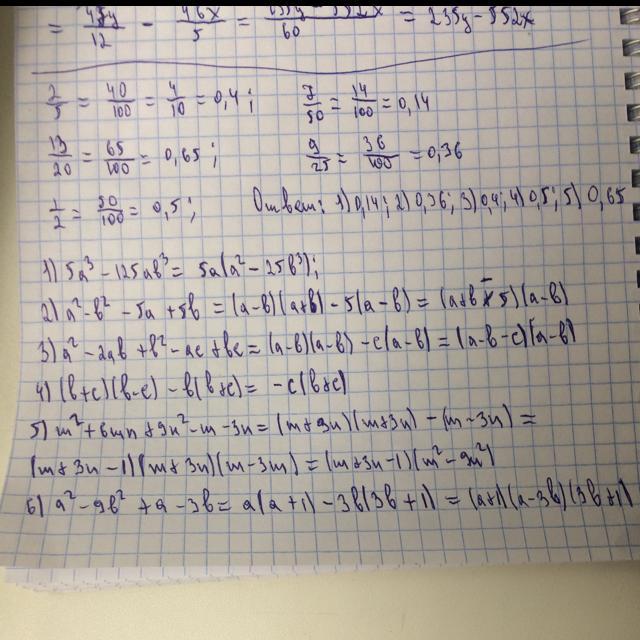 = 48y/12 - 46x/5 = /60 = 235y - 552x
2/5 = 40/100 = 4/10 = 0,4; 7/50 = 14/100 = 0,14
13/20 = 65/100 = 0,65; 9/25 = 36/100 = 0,36
1/2 = 50/100 = 0,5; Ответ: 1) 0,14; 2) 0,36; 3) 0,4; 4) 0,5; 5) 0,65
1) 5a³ - 125ab³ = 5a(a² - 25b³);
2) a² - b² - 5a + 5b = (a-b)(a+b) - 5(a-b) = (a+b-5)(a-b)
3) a² - 2ab + b² - ac + bc = (a-b)(a-b) - c(a-b) = (a-b-c)(a-b)
4) (b+c)(b-c) - b(b+c) = -c(b+c)
5) m² + 6mn + 9n² - m - 3n = (m+3n)(m+3n) - (m-3n) =
(m+3n-1)(m+3n)(m-3n) = (m+3n-1)(m²-9n²)
6) a² - 9b² + a - 3b = a(a+1) - 3b(3b+1) = (a+1)(a-3b)(3b+1)